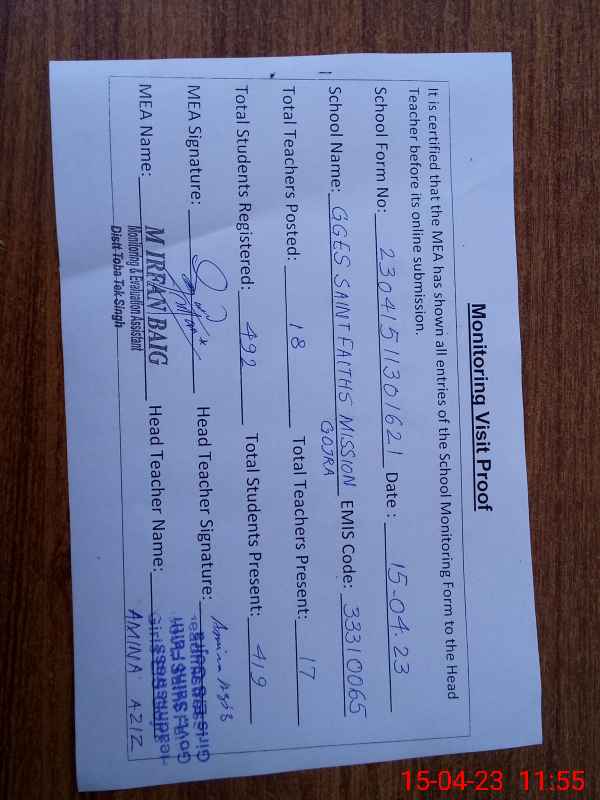 Monitoring Visit Proof
It is certified that the MEA has shown all entries of the School Monitoring Form to the Head
Teacher before its online submission.
School Form No: 23041511301621 Date : 15-04-23
School Name: GGES SAINT FAITHS MISSION EMIS Code: 33310065
GOJRA
Total Teachers Posted: 18 Total Teachers Present: 17
Total Students Registered: 492 Total Students Present: 419
MEA Signature: Head Teacher Signature: Amina
MEA Name: M IRFAN BAIG Head Teacher Name: AMINA AZIZ
Monitoring & Evaluation Assistant
Distt Toba Tek Singh
15-04-23 11:55